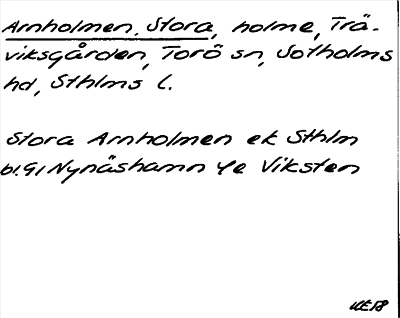 Arnholmen. Stora, holme, Trä-
viksgården, Torö sn, Sotholms
hd, Sthlms l.
Stora Arnholmen ek Sthlm
bl. 91 Nynäshamn 4e Viksten